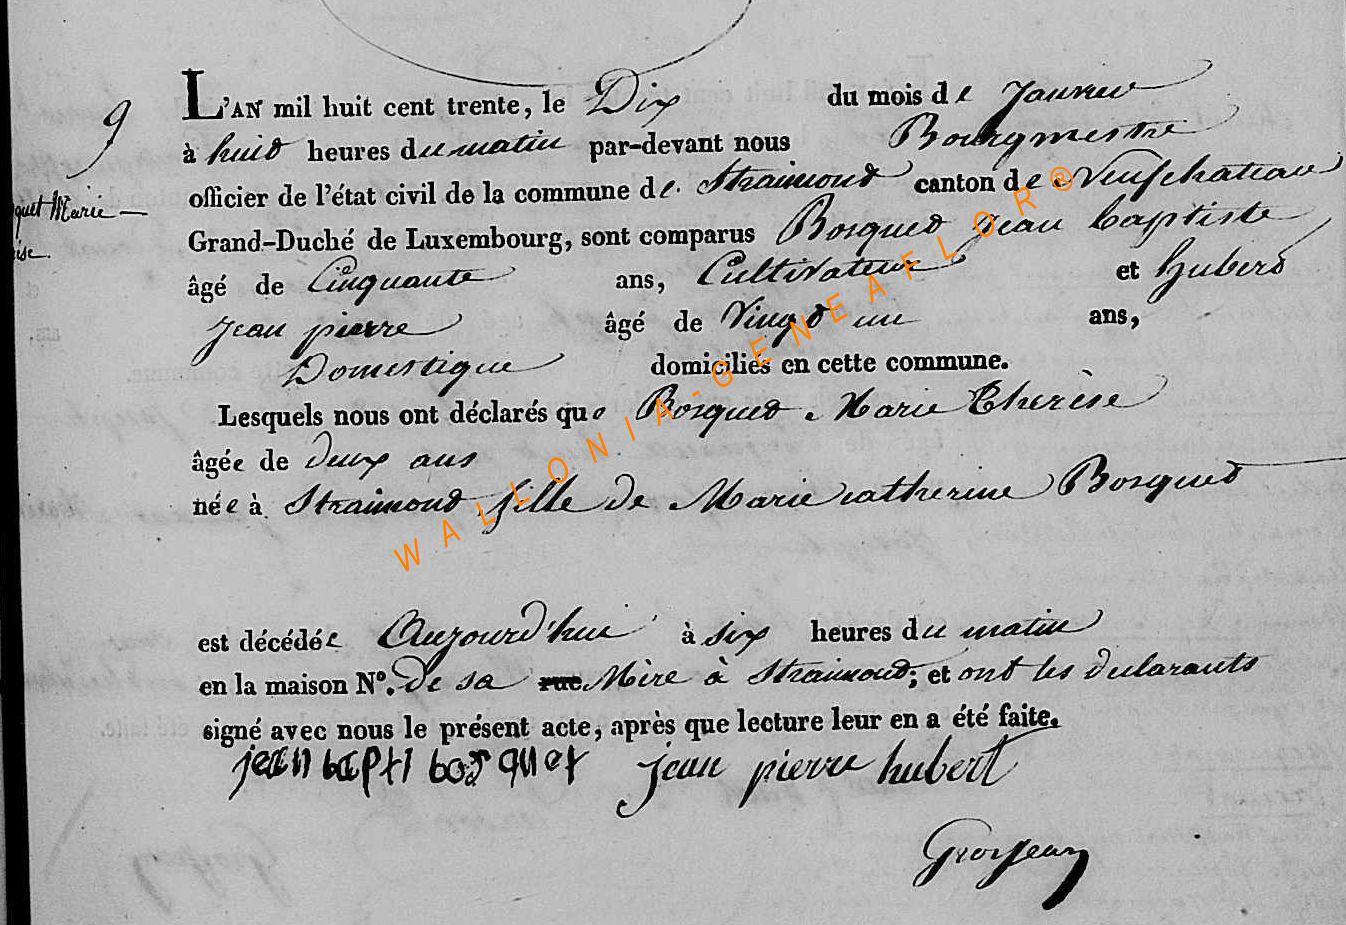 9
L'AN mil huit cent trente, le Dix du mois de Janvier
à huid heures du matin par-devant nous Bourgmestre
officier de l'état civil de la commune de Straimond canton de Neufchateau
quet Marie
Grand-Duché de Luxembourg, sont comparus Bosqued Jean baptiste
âgé de Cinquante ans, Cultivateur et hubert
Jean pierre âgé de Vingd un ans,
Domestique domiciliés en cette commune.
Lesquels nous ont déclarés que Bosqued Marie Therèse
âgée de deux ans
née à Straimond fille de Marie catherine Bosqued
est décédée Aujourd'hui à six heures du matin
en la maison Nº. de sa rue Mère à Straimond; et ont les déclarants
signé avec nous le présent acte, après que lecture leur en a été faite.
jean bapti bosquet jean pierre hubert
Grosjean
WALLONIA-GENEAFLOR®